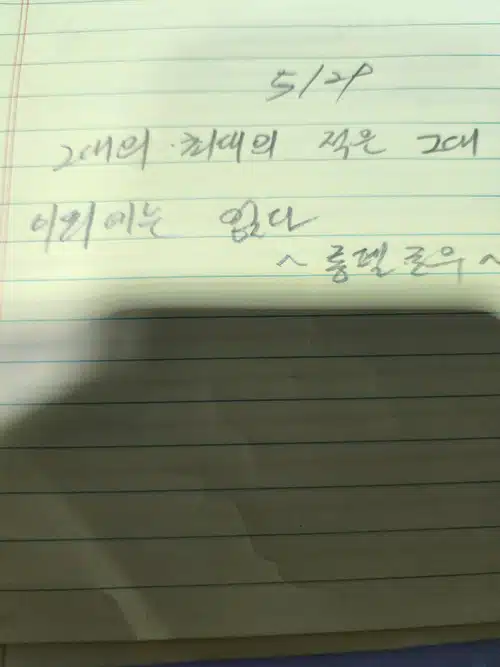 5/29
그대의 최대의 적은 그대
이외에는 없다
~ 롱펠로우 ~